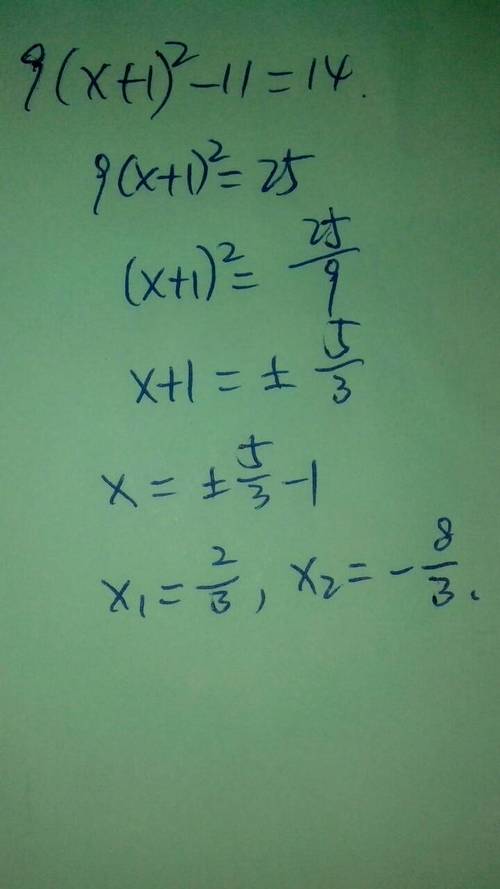 9(x+1)²-11=14.
9(x+1)²=25
(x+1)²=25/9
x+1=±5/3
x=±5/3-1
x₁=2/3, x₂=-8/3.